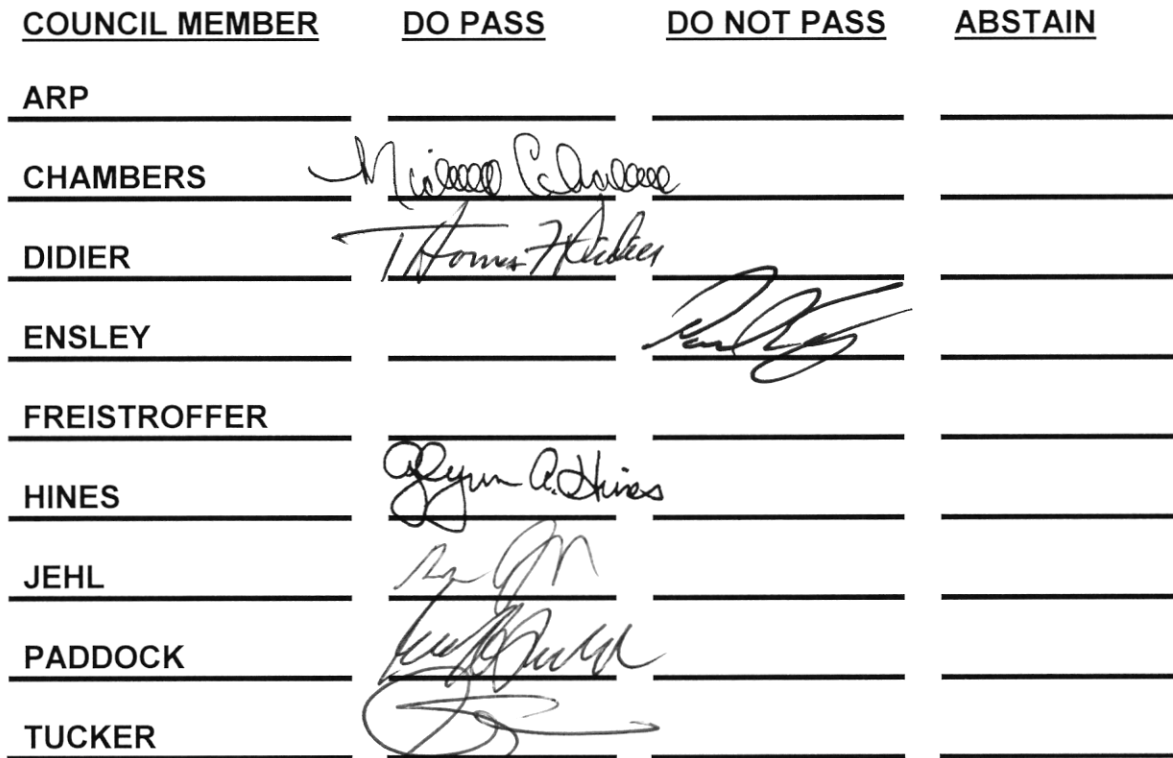 COUNCIL MEMBER DO PASS DO NOT PASS ABSTAIN
ARP
CHAMBERS
DIDIER Thomas F Didier
ENSLEY
FREISTROFFER
HINES Glynn A. Hines
JEHL
PADDOCK
TUCKER